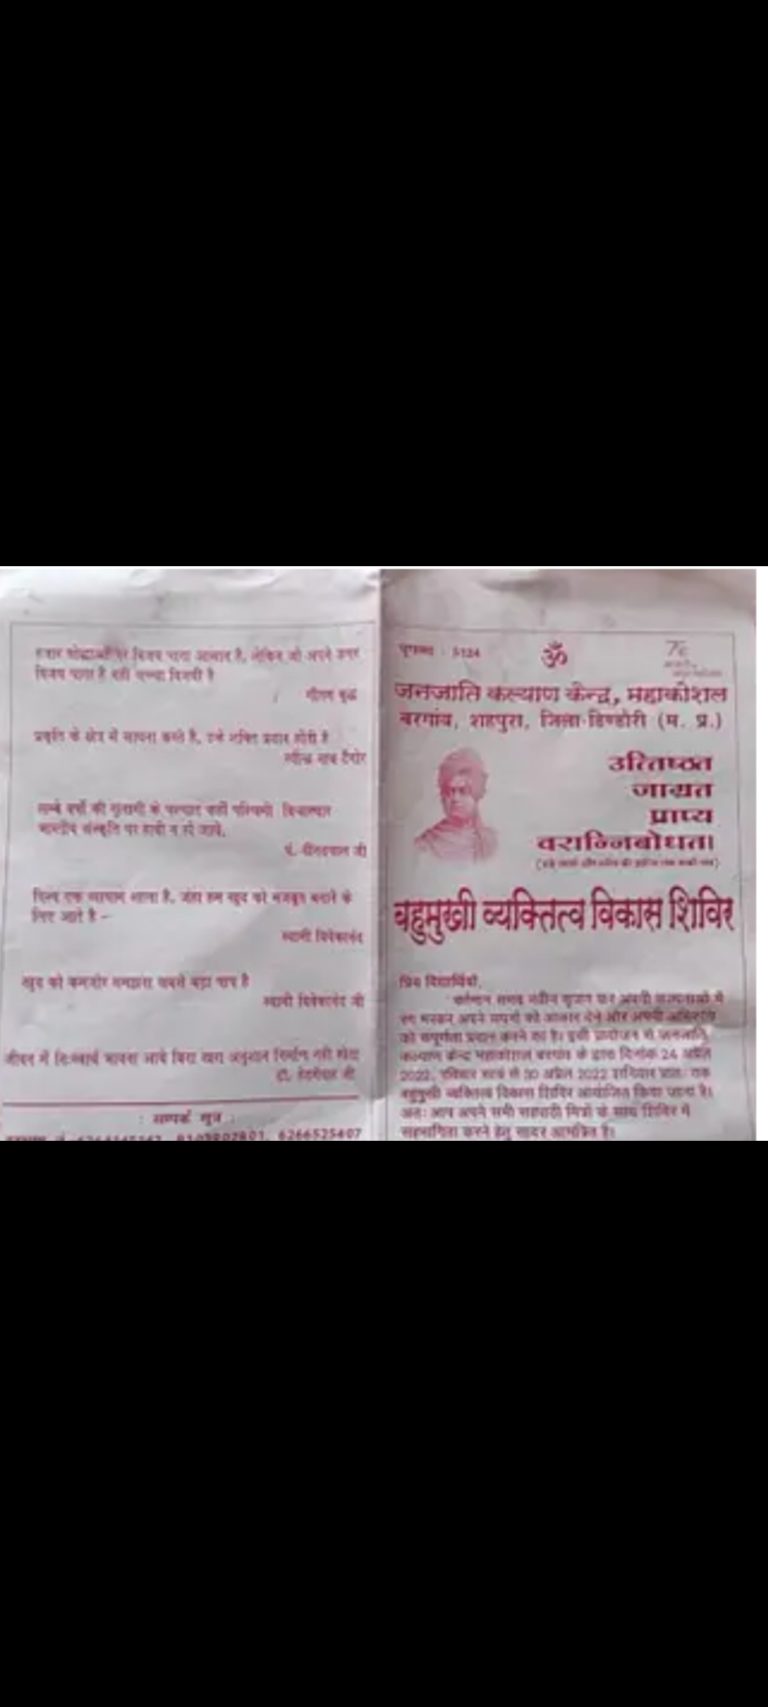 हजार योद्धाओं पर विजय पाना आसान है, लेकिन जो अपने ऊपर
विजय पाता है वही सच्चा विजयी है
गौतम बुद्ध
प्रकृति के क्षेत्र में साधना करते है, उन्हे शक्ति प्रदान होती है
नाथ टैगोर
वर्षों की गुलामी के पश्चात कहीं पश्चिमी
भारतीय संस्कृति पर हावी न हो जाये.
पं. दीनदयाल जी
विश्व एक व्यायाम शाला है, जंहा हम खुद को मजबूत बनाने के
लिए आते है –
स्वामी विवेकानंद
खुद को कमजोर समझना सबसे बड़ा पाप है
स्वामी विवेकानंद जी
जीवन में निःस्वार्थ भावना आये बिना खरा अनुशासन निर्माण नही होता
डॉ. हेडगेवार जी
: सम्पर्क सूत्र :
6266525407
युगाब्द : 5124
ॐ
जनजाति कल्याण केन्द्र, महाकोशल
बरगांव, शहपुरा, जिला-डिण्डोरी (म. प्र.)
उत्तिष्ठत
जाग्रत
प्राप्य
वरान्निबोधत।
बहुमुखी व्यक्तित्व विकास शिविर
प्रिय विद्यार्थियों,
वर्तमान समय नवीन सृजन कर अपनी कल्पनाओं में
रंग भरकर अपने सपनों को आकार देने और अपनी अभिरुचि
को संपूर्णता प्रदान करने का है। इसी प्रयोजन से जनजाति
कल्याण केन्द्र महाकोशल बरगांव के द्वारा दिनांक 24 अप्रैल
2022, रविवार से 30 अप्रैल 2022 शनिवार प्रातः तक
बहुमुखी व्यक्तित्व विकास शिविर आयोजित किया जाना है।
अतः आप अपने सभी सहपाठी मित्रों के साथ शिविर में
सहभागिता करने हेतु सादर आमंत्रित है।